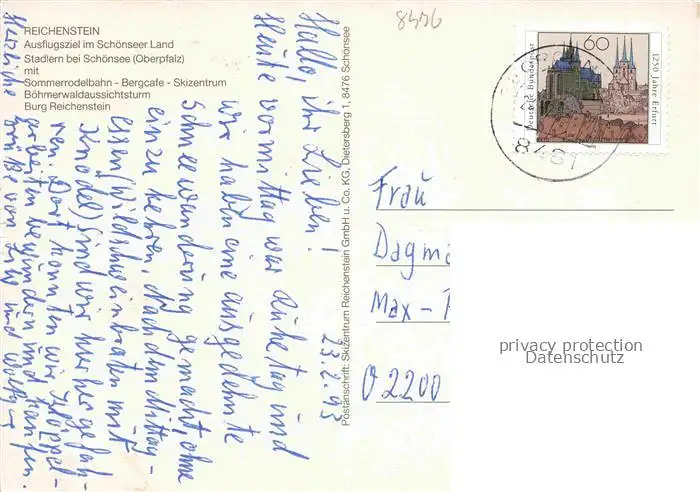 REICHENSTEIN
Ausflugsziel im Schönseer Land
Stadlern bei Schönsee (Oberpfalz)
mit
Sommerrodelbahn - Bergcafe - Skizentrum
Böhmerwaldaussichtsturm
Burg Reichenstein
8476
60
Deutsche Bundespost
1250 Jahre Erfurt
8481
Postanschrift: Skizentrum Reichenstein GmbH u. Co. KG, Dietersberg 1, 8476 Schönsee
23.2.93
Hallo, ihr Lieben!
Heute vormittag war Ruhetag und
wir haben eine ausgedehnte
Schneewanderung gemacht, ohne
einzukehren. Nach dem Mittag-
essen (Wildschweinbraten mit
Knödel) sind wir hierher gefah-
ren. Dort konnten wir Klöppel-
arbeiten bewundern und kaufen.
Herzliche Grüße von und
Frau
Dagma
Max -
O 2200
privacy protection
Datenschutz